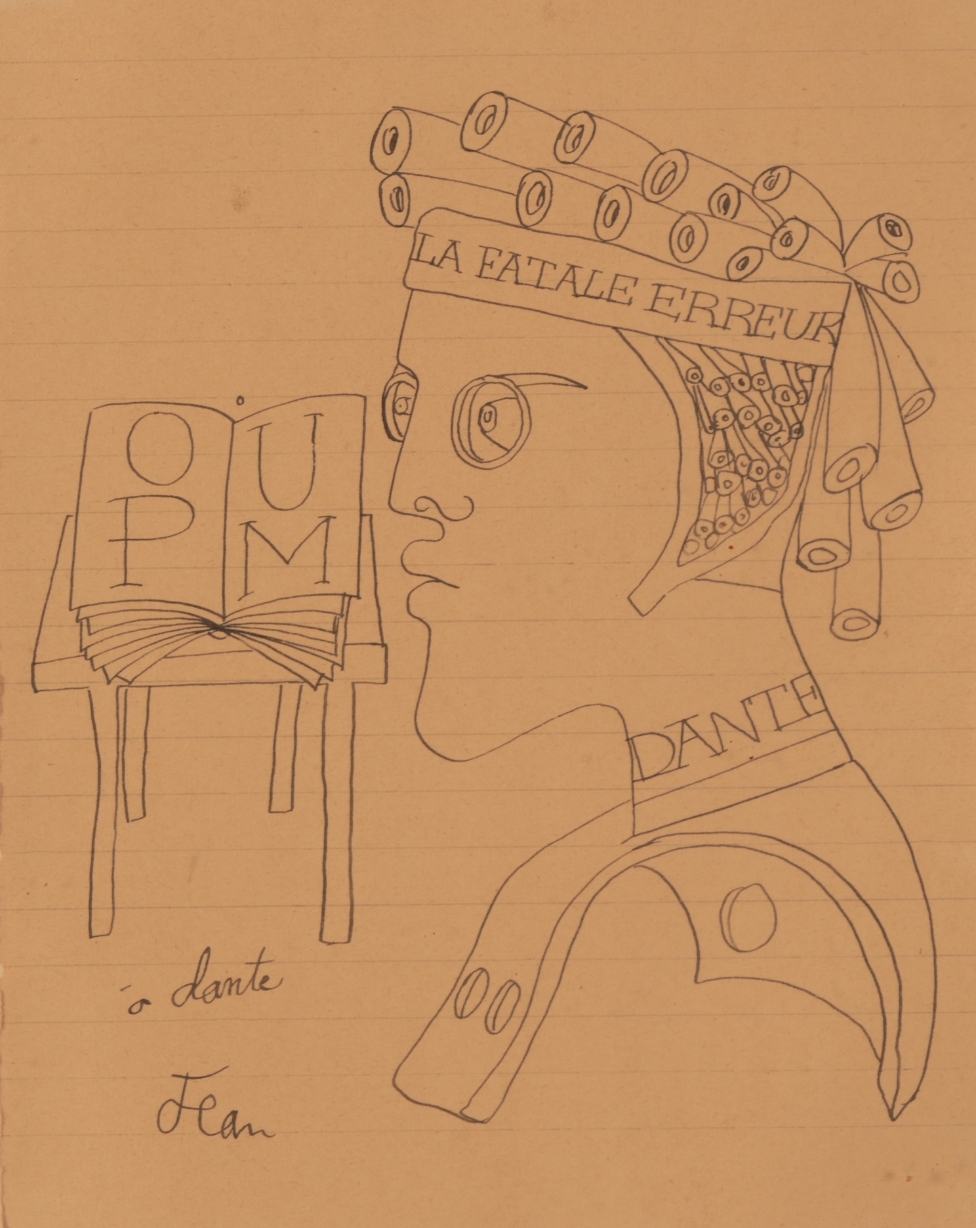 LA FATALE ERREUR
O U
P M
DANTE
à dante
Jean